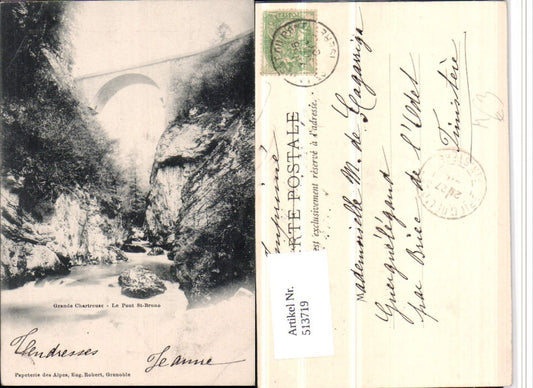 Grande Chartreuse - Le Pont St-Bruno
Tendresses
Jeanne
Papeterie des Alpes, Eug. Robert, Grenoble
CARTE POSTALE
est exclusivement réservé à l'adresse.
Imprimé
Mademoiselle M. de Lagarrigue
Guerguélégand
par Briec de l'Odet
Finistère
63
Artikel Nr.
513719